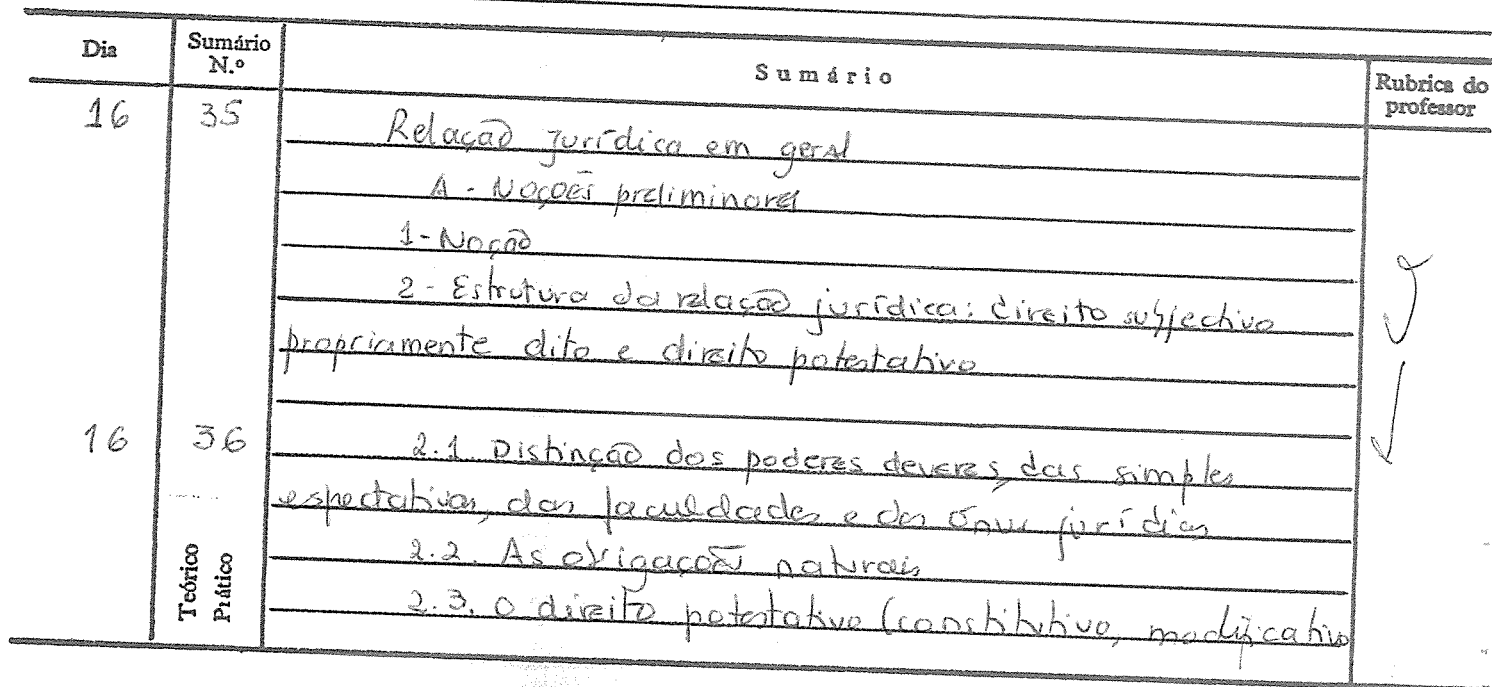 Dia Sumário N.º Sumário Rubrica do professor
16 35 Relação jurídica em geral
A - Noções preliminares
1 - Noção
2 - Estrutura da relação jurídica: direito subjectivo
propriamente dito e direito potestativo
16 36 2.1. Distinção dos poderes deveres, das simples
espectativas, das faculdades e dos ónus jurídicos
2.2. As obrigações naturais
2.3. O direito potestativo (constitutivo, modificativo
Teórico
Prático